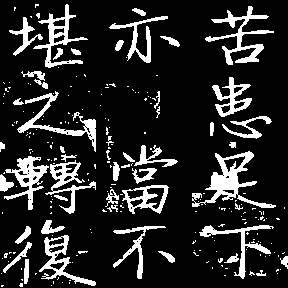 苦患足下
亦當不
堪之轉復